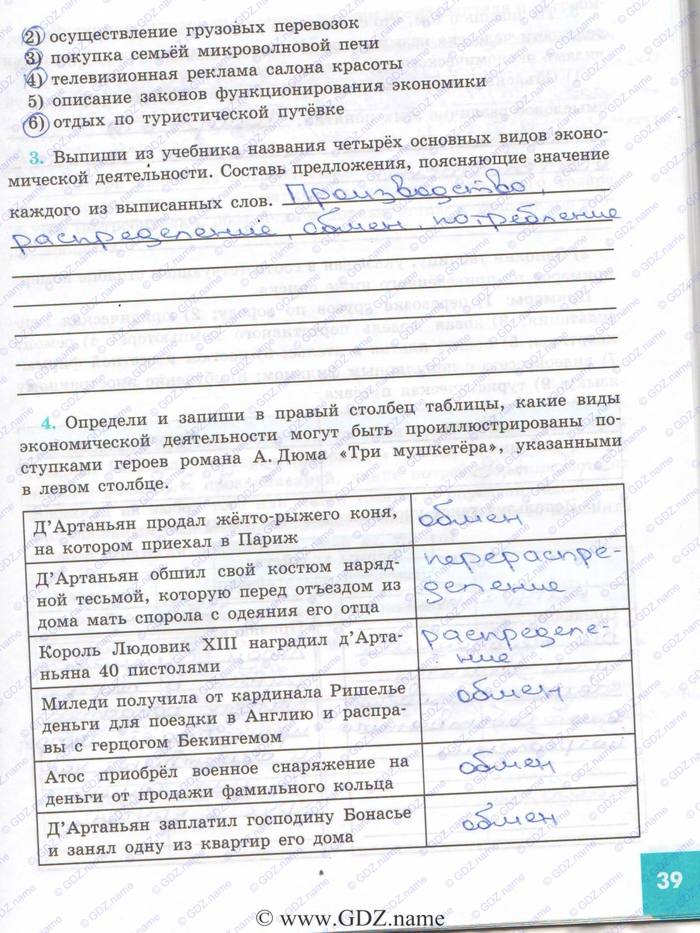 2) осуществление грузовых перевозок
3) покупка семьёй микроволновой печи
4) телевизионная реклама салона красоты
5) описание законов функционирования экономики
6) отдых по туристической путёвке
3. Выпиши из учебника названия четырёх основных видов эконо-
мической деятельности. Составь предложения, поясняющие значение
каждого из выписанных слов. Производство,
распределение, обмен, потребление
4. Определи и запиши в правый столбец таблицы, какие виды
экономической деятельности могут быть проиллюстрированы по-
ступками героев романа А. Дюма «Три мушкетёра», указанными
в левом столбце.
Д’Артаньян продал жёлто-рыжего коня,
на котором приехал в Париж
обмен
Д’Артаньян обшил свой костюм наряд-
ной тесьмой, которую перед отъездом из
дома мать спорола с одеяния его отца
перераспре-
деление
Король Людовик XIII наградил д’Арта-
ньяна 40 пистолями
распределе-
ние
Миледи получила от кардинала Ришелье
деньги для поездки в Англию и распра-
вы с герцогом Бекингемом
обмен
Атос приобрёл военное снаряжение на
деньги от продажи фамильного кольца
обмен
Д’Артаньян заплатил господину Бонасье
и занял одну из квартир его дома
обмен
39
© www.GDZ.name